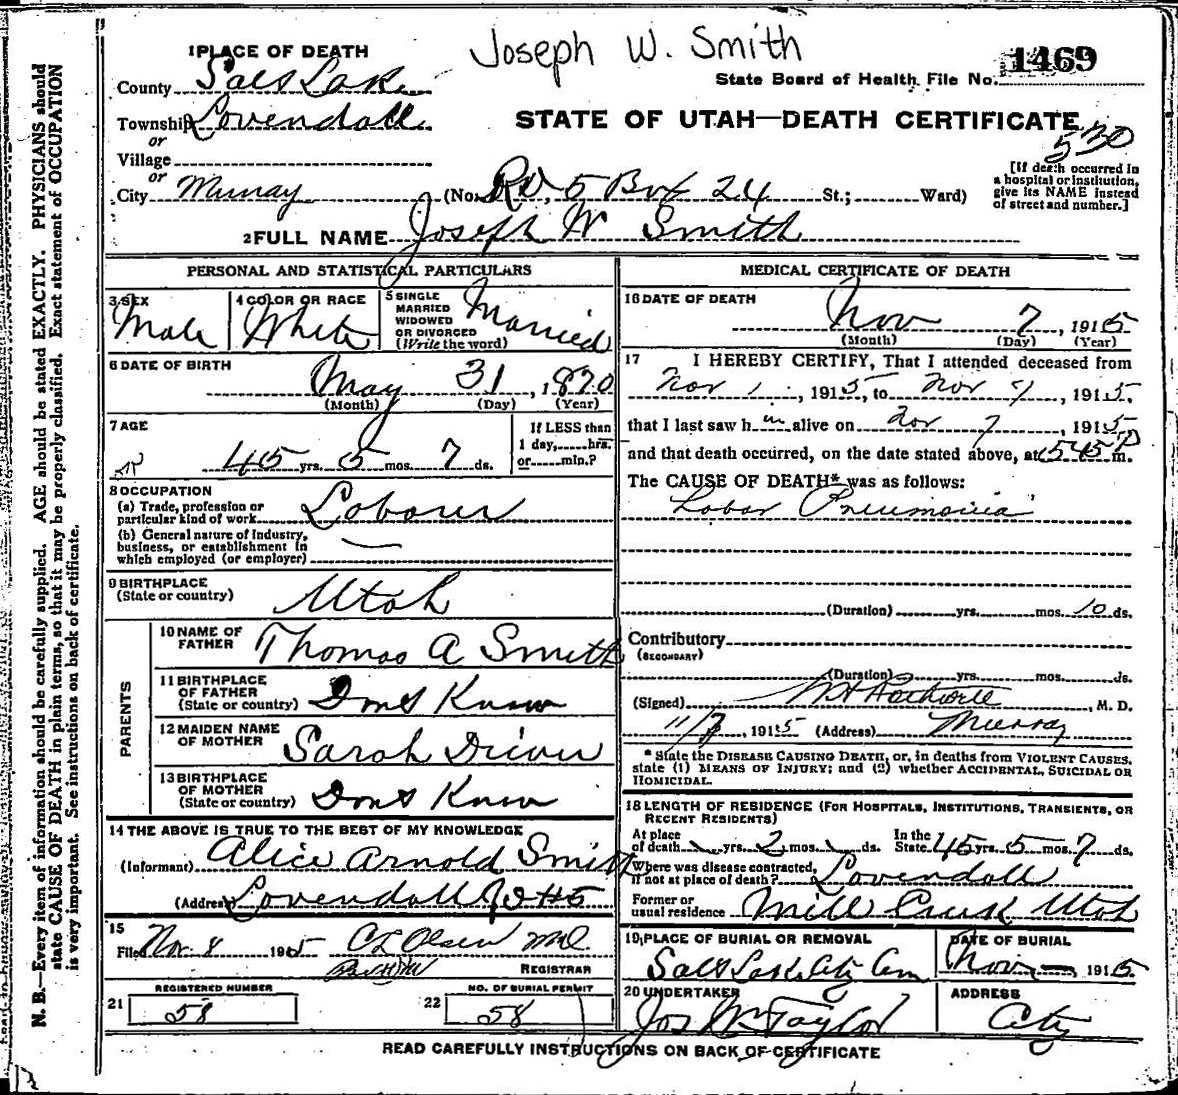 Joseph W. Smith
1469
1 PLACE OF DEATH
State Board of Health File No.
County Salt Lake
Township Lovendall
STATE OF UTAH—DEATH CERTIFICATE
or
530
Village
or
City Murray (No. RD, 5 Box 24 St.; Ward)
[If death occurred in
a hospital or institution,
give its NAME instead
of street and number.]
2 FULL NAME Joseph W Smith
PERSONAL AND STATISTICAL PARTICULARS
3 SEX Male
4 COLOR OR RACE White
5 SINGLE
MARRIED
WIDOWED
OR DIVORCED
(Write the word) Married
6 DATE OF BIRTH
May 31, 1870
(Month) (Day) (Year)
7 AGE
45 yrs. 5 mos. 7 ds.
If LESS than
1 day, hrs.
or min.?
8 OCCUPATION
(a) Trade, profession or
particular kind of work Laborer
(b) General nature of Industry,
business, or establishment in
which employed (or employer)
9 BIRTHPLACE
(State or country) Utah
PARENTS
10 NAME OF
FATHER Thomas A Smith
11 BIRTHPLACE
OF FATHER
(State or country) Dont Know
12 MAIDEN NAME
OF MOTHER Sarah Driver
13 BIRTHPLACE
OF MOTHER
(State or country) Dont Know
14 THE ABOVE IS TRUE TO THE BEST OF MY KNOWLEDGE
(Informant) Alice Arnold Smith
(Address) Lovendall
15
Filed Nov. 8 1915 C L Olsen MD.
REGISTRAR
REGISTERED NUMBER
21 58
NO. OF BURIAL PERMIT
22 58
MEDICAL CERTIFICATE OF DEATH
16 DATE OF DEATH
Nov 7, 1915
(Month) (Day) (Year)
17 I HEREBY CERTIFY, That I attended deceased from
Nov 1, 1915, to Nov 7, 1915,
that I last saw him alive on Nov 7, 1915
and that death occurred, on the date stated above, at 545 P m.
The CAUSE OF DEATH* was as follows:
Lobar Pneumonia
(Duration) yrs. mos. 10 ds.
Contributory
(SECONDARY)
(Duration) yrs. mos. ds.
(Signed) , M. D.
1915 (Address) Murray
* State the DISEASE CAUSING DEATH, or, in deaths from VIOLENT CAUSES,
state (1) MEANS OF INJURY; and (2) whether ACCIDENTAL, SUICIDAL OR
HOMICIDAL.
18 LENGTH OF RESIDENCE (FOR HOSPITALS, INSTITUTIONS, TRANSIENTS, OR
RECENT RESIDENTS)
At place
of death yrs. 2 mos. ds.
In the
State 45 yrs. 5 mos. 7 ds.
Where was disease contracted,
if not at place of death? Lovendall
Former or
usual residence Mill Creek Utah
19 PLACE OF BURIAL OR REMOVAL
Salt Lake City Cem
DATE OF BURIAL
Nov —, 1915
20 UNDERTAKER
Jos Wm Taylor
ADDRESS
City
READ CAREFULLY INSTRUCTIONS ON BACK OF CERTIFICATE
N. B.—Every item of information should be carefully supplied. AGE should be stated EXACTLY. PHYSICIANS should
state CAUSE OF DEATH in plain terms, so that it may be properly classified. Exact statement of OCCUPATION
is very important. See instructions on back of certificate.